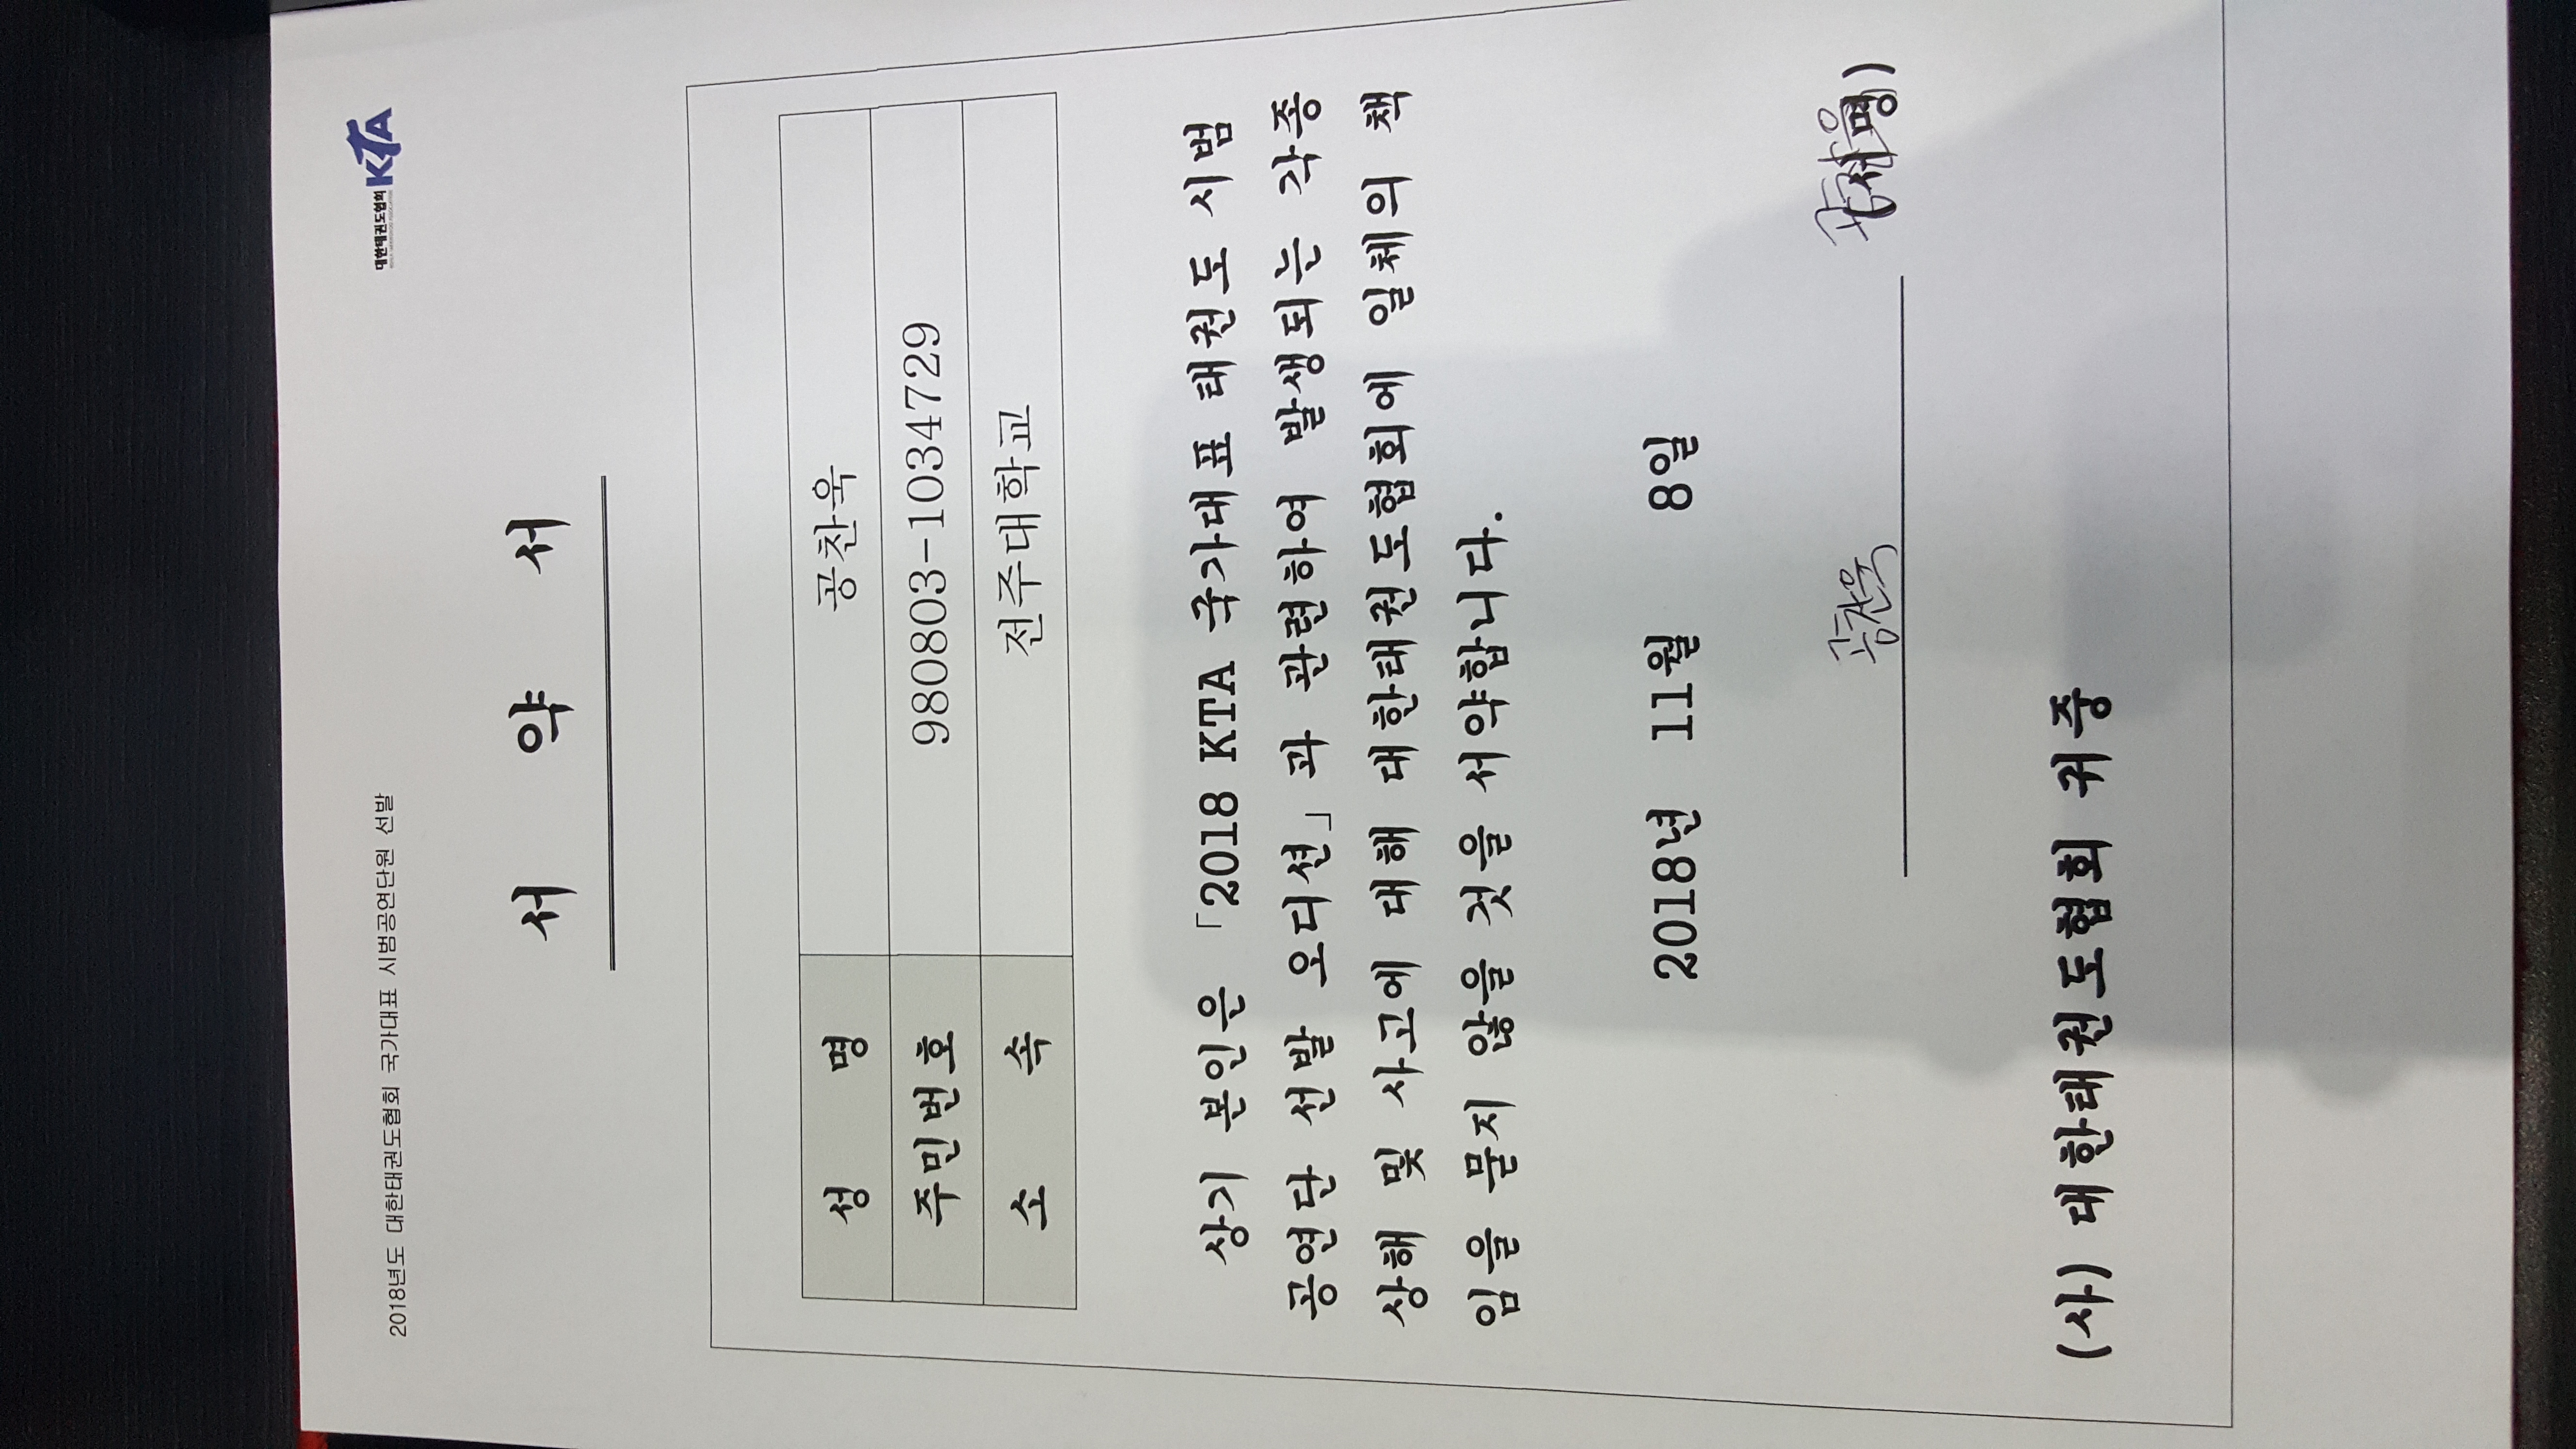 2018년도 대한태권도협회 국가대표 시범공연단원 선발
대한태권도협회 KTA
서 약 서
성 명 공찬욱
주민번호 980803-1034729
소 속 전주대학교
상기 본인은 「2018 KTA 국가대표 태권도 시범
공연단 선발 오디션」과 관련하여 발생되는 각종
상해 및 사고에 대해 대한태권도협회에 일체의 책
임을 물지 않을 것을 서약합니다.
2018년 11월 8일
공찬욱 (서명) 공찬욱
(사) 대한태권도협회 귀중